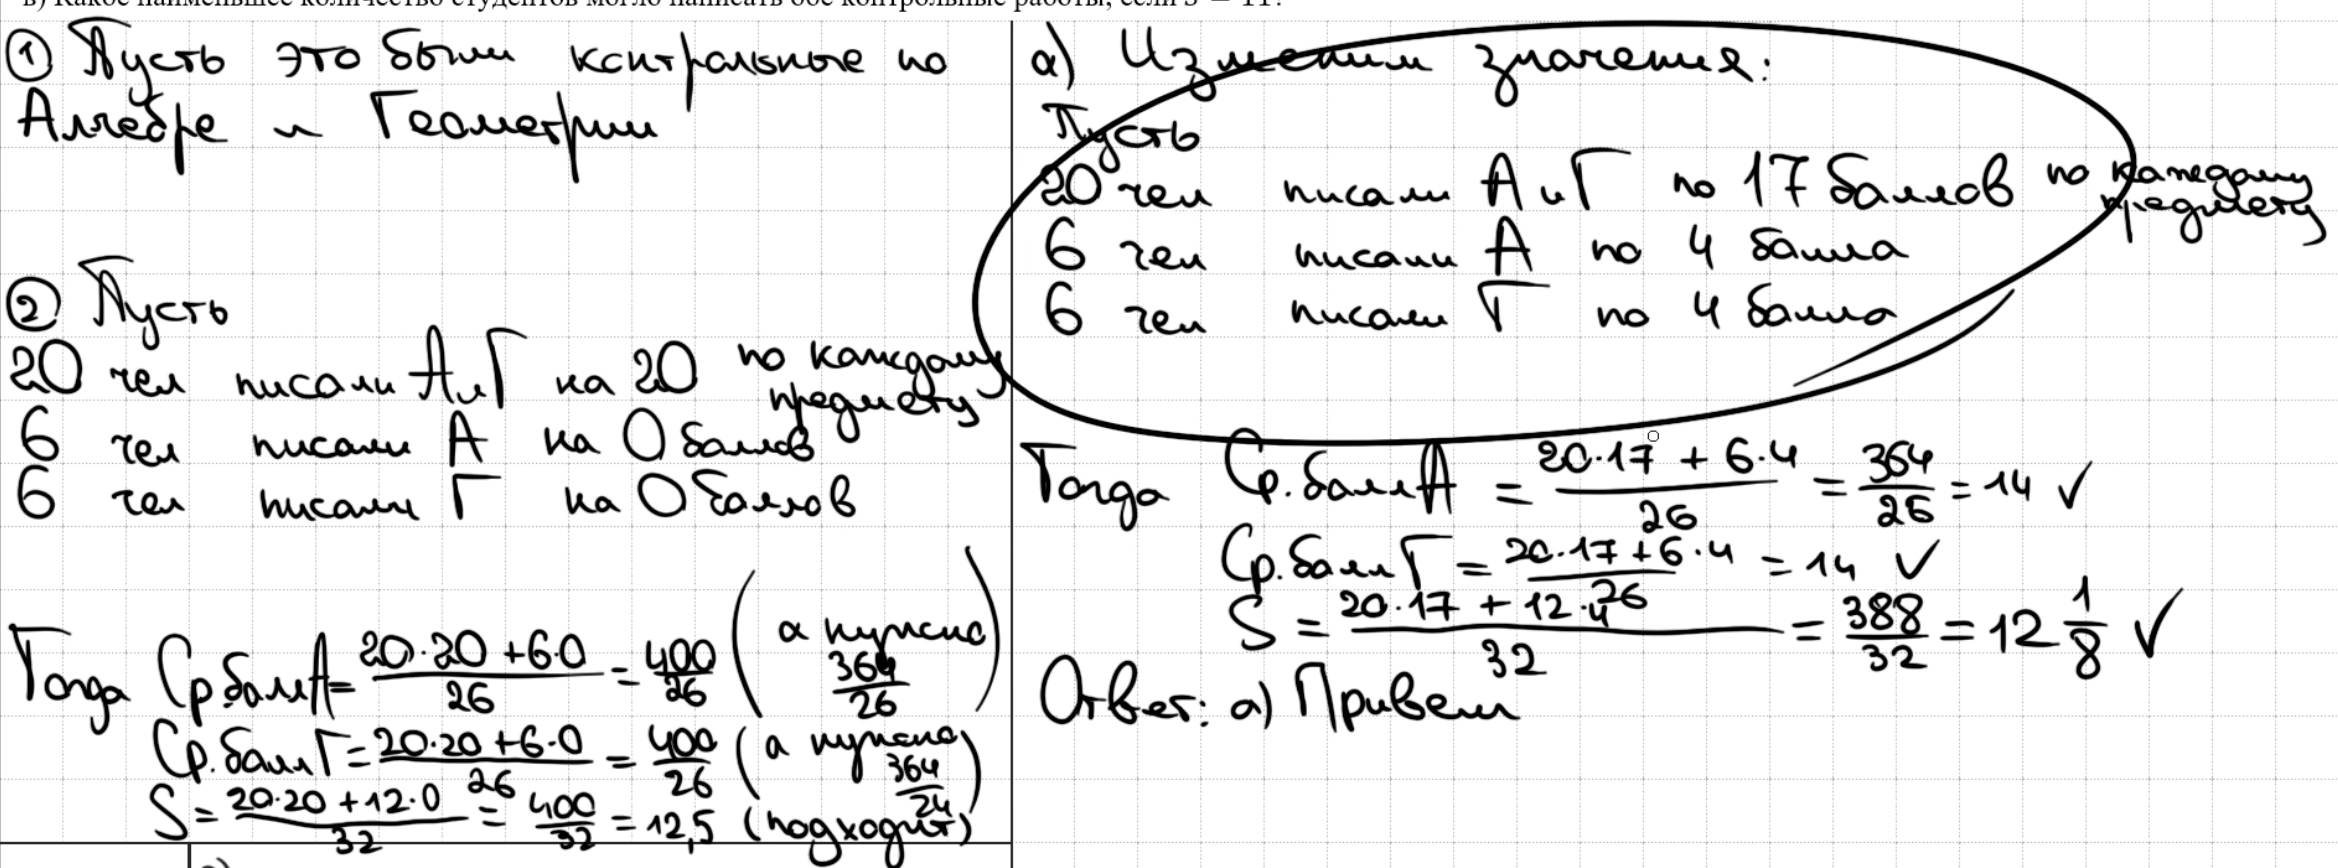 в) Какое наименьшее количество студентов могло написать обе контрольные работы, если S = 11?
① Пусть это были контрольные по
Алгебре и Геометрии
② Пусть
20 чел писали А и Г на 20 по каждому
предмету
6 чел писали А на 0 баллов
6 чел писали Г на 0 баллов
Тогда Ср.балл А = 20·20 + 6·0 / 26 = 400/26 (а нужно 364/26)
Ср.балл Г = 20·20 + 6·0 / 26 = 400/26 (а нужно 364/24)
S = 20·20 + 12·0 / 32 = 400/32 = 12,5 (подходит)
а) Изменим значения:
Пусть
20 чел писали А и Г по 17 баллов по каждому
предмету
6 чел писали А по 4 балла
6 чел писали Г по 4 балла
Тогда Ср.балл А = 20·17 + 6·4 / 26 = 364/26 = 14 ✓
Ср.балл Г = 20·17 + 6·4 / 26 = 14 ✓
S = 20·17 + 12·4 / 32 = 388/32 = 12 1/8 ✓
Ответ: а) Привели